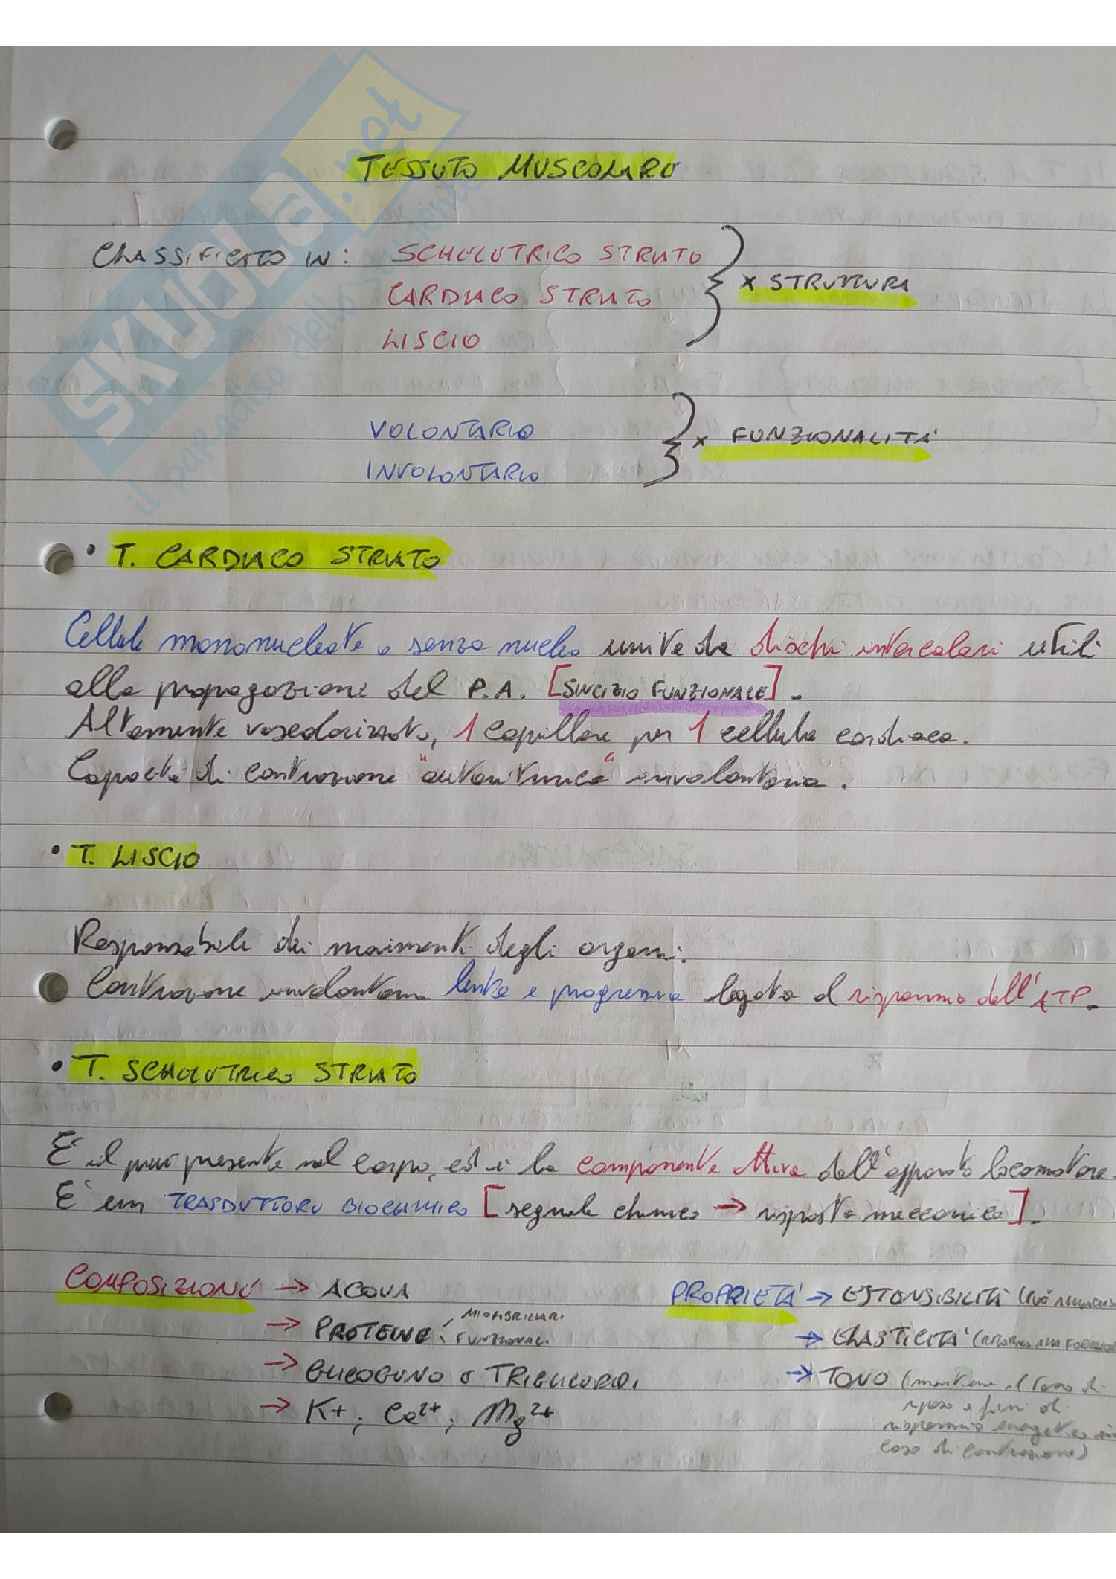 SKUOLA.net
TESSUTO MUSCOLARE
CLASSIFICATO IN: SCHELETRICO STRIATO
CARDIACO STRIATO
x STRUTTURA
LISCIO
VOLONTARIO
x FUNZIONALITÀ
INVOLONTARIO
• T. CARDIACO STRIATO
Cellule mononucleate o senza nucleo unite da dischi intercalari utili
alla propagazione del P.A. [SINCIZIO FUNZIONALE].
Altamente vascolarizzato, 1 capillare per 1 cellula cardiaca.
Capacità di contrazione "autoritmica" involontaria.
• T. LISCIO
Responsabile dei movimenti degli organi.
Contrazione involontaria lenta e progressiva legata al risparmio dell'ATP.
• T. SCHELETRICO STRIATO
È il più presente nel corpo, ed è la componente Attiva dell'apparato locomotore.
È un TRASDUTTORE BIOCHIMICO [segnale chimico → risposta meccanica].
COMPOSIZIONE → ACQUA
→ PROTEINE MIOFIBRILLARI
FUNZIONALI
→ GLICOGENO e TRIGLICERIDI
→ K+, Ca2+, Mg2+
PROPRIETÀ → ESTENSIBILITÀ (può
→ ELASTICITÀ (ritorno alla
→ TONO (mantiene il tono di
riposo e fini di
risparmio energetico in
caso di contrazione)